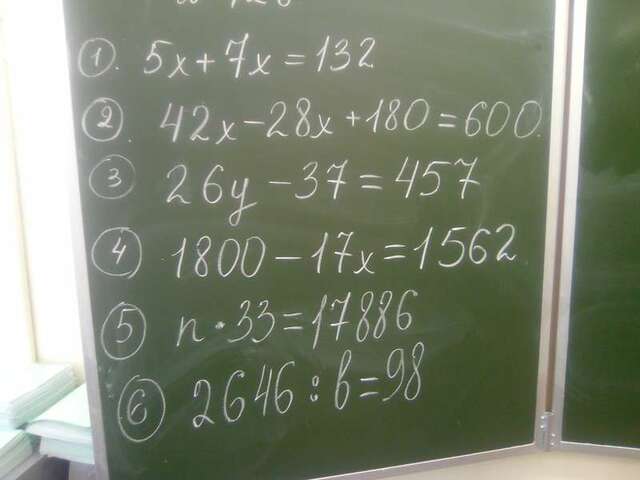 1. 5x+7x=132
2. 42x-28x+180=600.
3 26y-37=457
4 1800-17x=1562
5 n·33=17886
6 2646:b=98